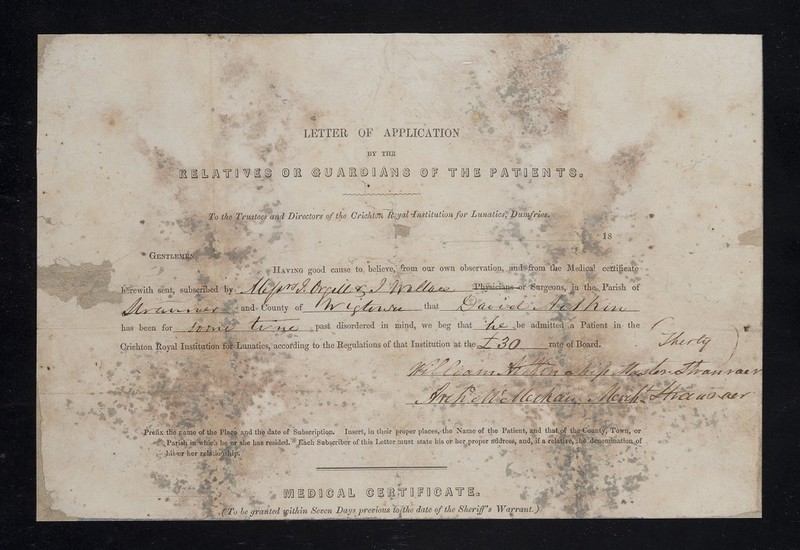 LETTER OF APPLICATION
BY THE
RELATIVES OR GUARDIANS OF THE PATIENTS.
To the Trustees and Directors of the Crichton Royal Institution for Lunatics, Dumfries.
18
GENTLEMEN
HAVING good cause to believe, from our own observation, and from the Medical certificate
herewith sent, subscribed by Messrs J. Orgill & J. Wallace Physicians or Surgeons, in the Parish of
Stranraer and County of Wigtown that David Aitkin
has been for some time past disordered in mind, we beg that he be admitted a Patient in the
Crichton Royal Institution for Lunatics, according to the Regulations of that Institution at the £30 rate of Board. Therty
William Ship Master Stranraer
Archd McMeekan Mercht Stranraer
Prefix the name of the Place and the date of Subscription. Insert, in their proper places, the Name of the Patient, and that of the County, Town, or
Parish in which he or she has resided. Each Subscriber of this Letter must state his or her proper address, and, if a relative, the denomination of
his or her relationship.
MEDICAL CERTIFICATE.
(To be granted within Seven Days previous to the date of the Sheriff's Warrant.)